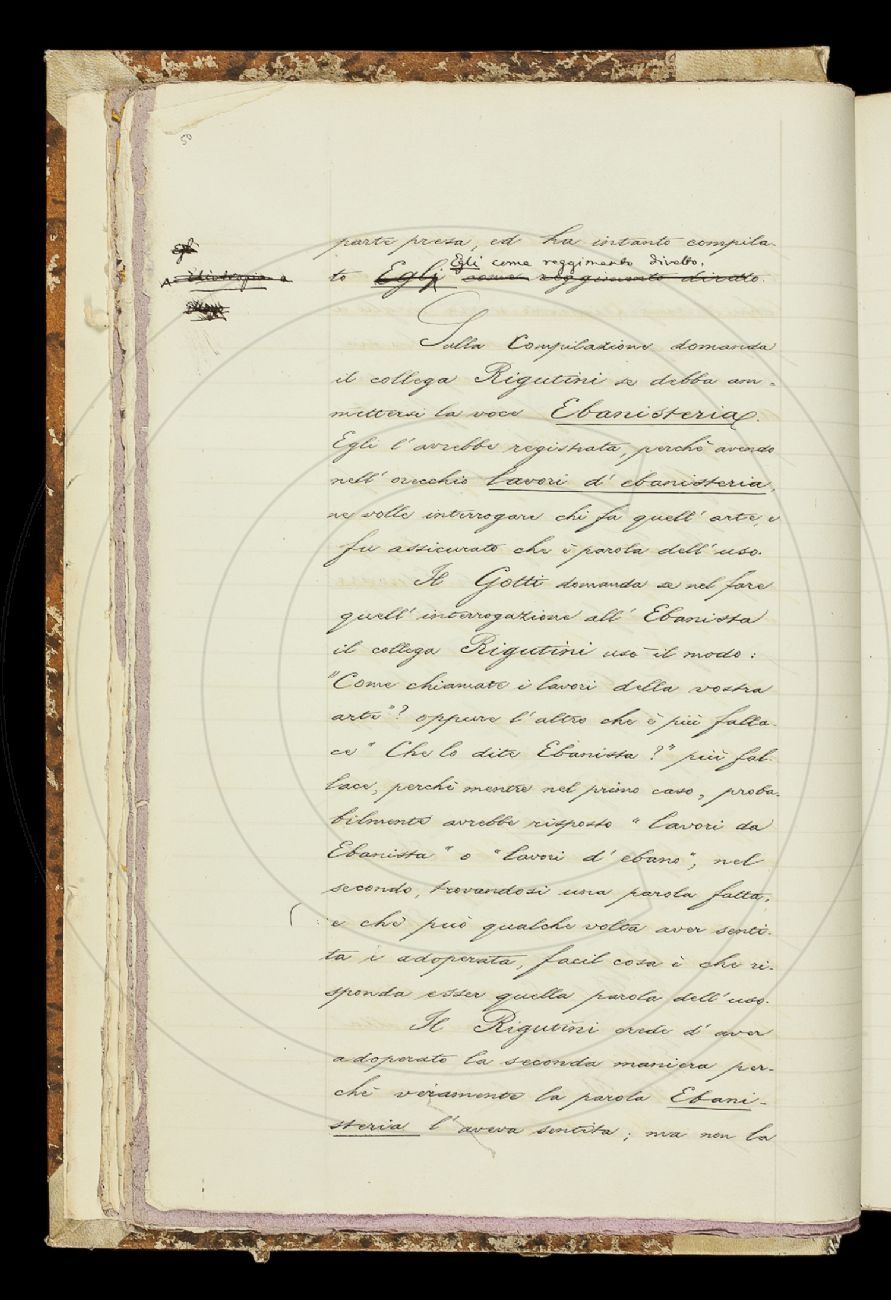 50
parte presa, ed ha intanto compila-
Egli come reggimento diretto.
to Egli come reggimento diretto.
Sulla Compilazione domanda
il collega Rigutini se debba am-
mettersi la voce Ebanisteria.
Egli l'avrebbe registrata, perchè avendo
nell'orecchio lavori d'ebanisteria,
ne volle interrogare chi fa quell'arte e
fu assicurato che è parola dell'uso.
Il Gotti domanda se nel fare
quell'interrogazione all'Ebanista
il collega Rigutini usò il modo:
"Come chiamate i lavori della vostra
arte"? oppure l'altro che è più falla-
ce "Che lo dite Ebanista?" più fal-
lace, perchè mentre nel primo caso, proba-
bilmente avrebbe risposto "lavori da
Ebanista" o "lavori d'ebano", nel
secondo, trovandosi una parola fatta,
e che può qualche volta aver senti-
ta i adoperata, facil cosa è che ri-
sponda esser quella parola dell'uso.
Il Rigutini crede d'aver
adoperato la seconda maniera per-
chè veramente la parola Ebani-
steria l'aveva sentita; ma non la